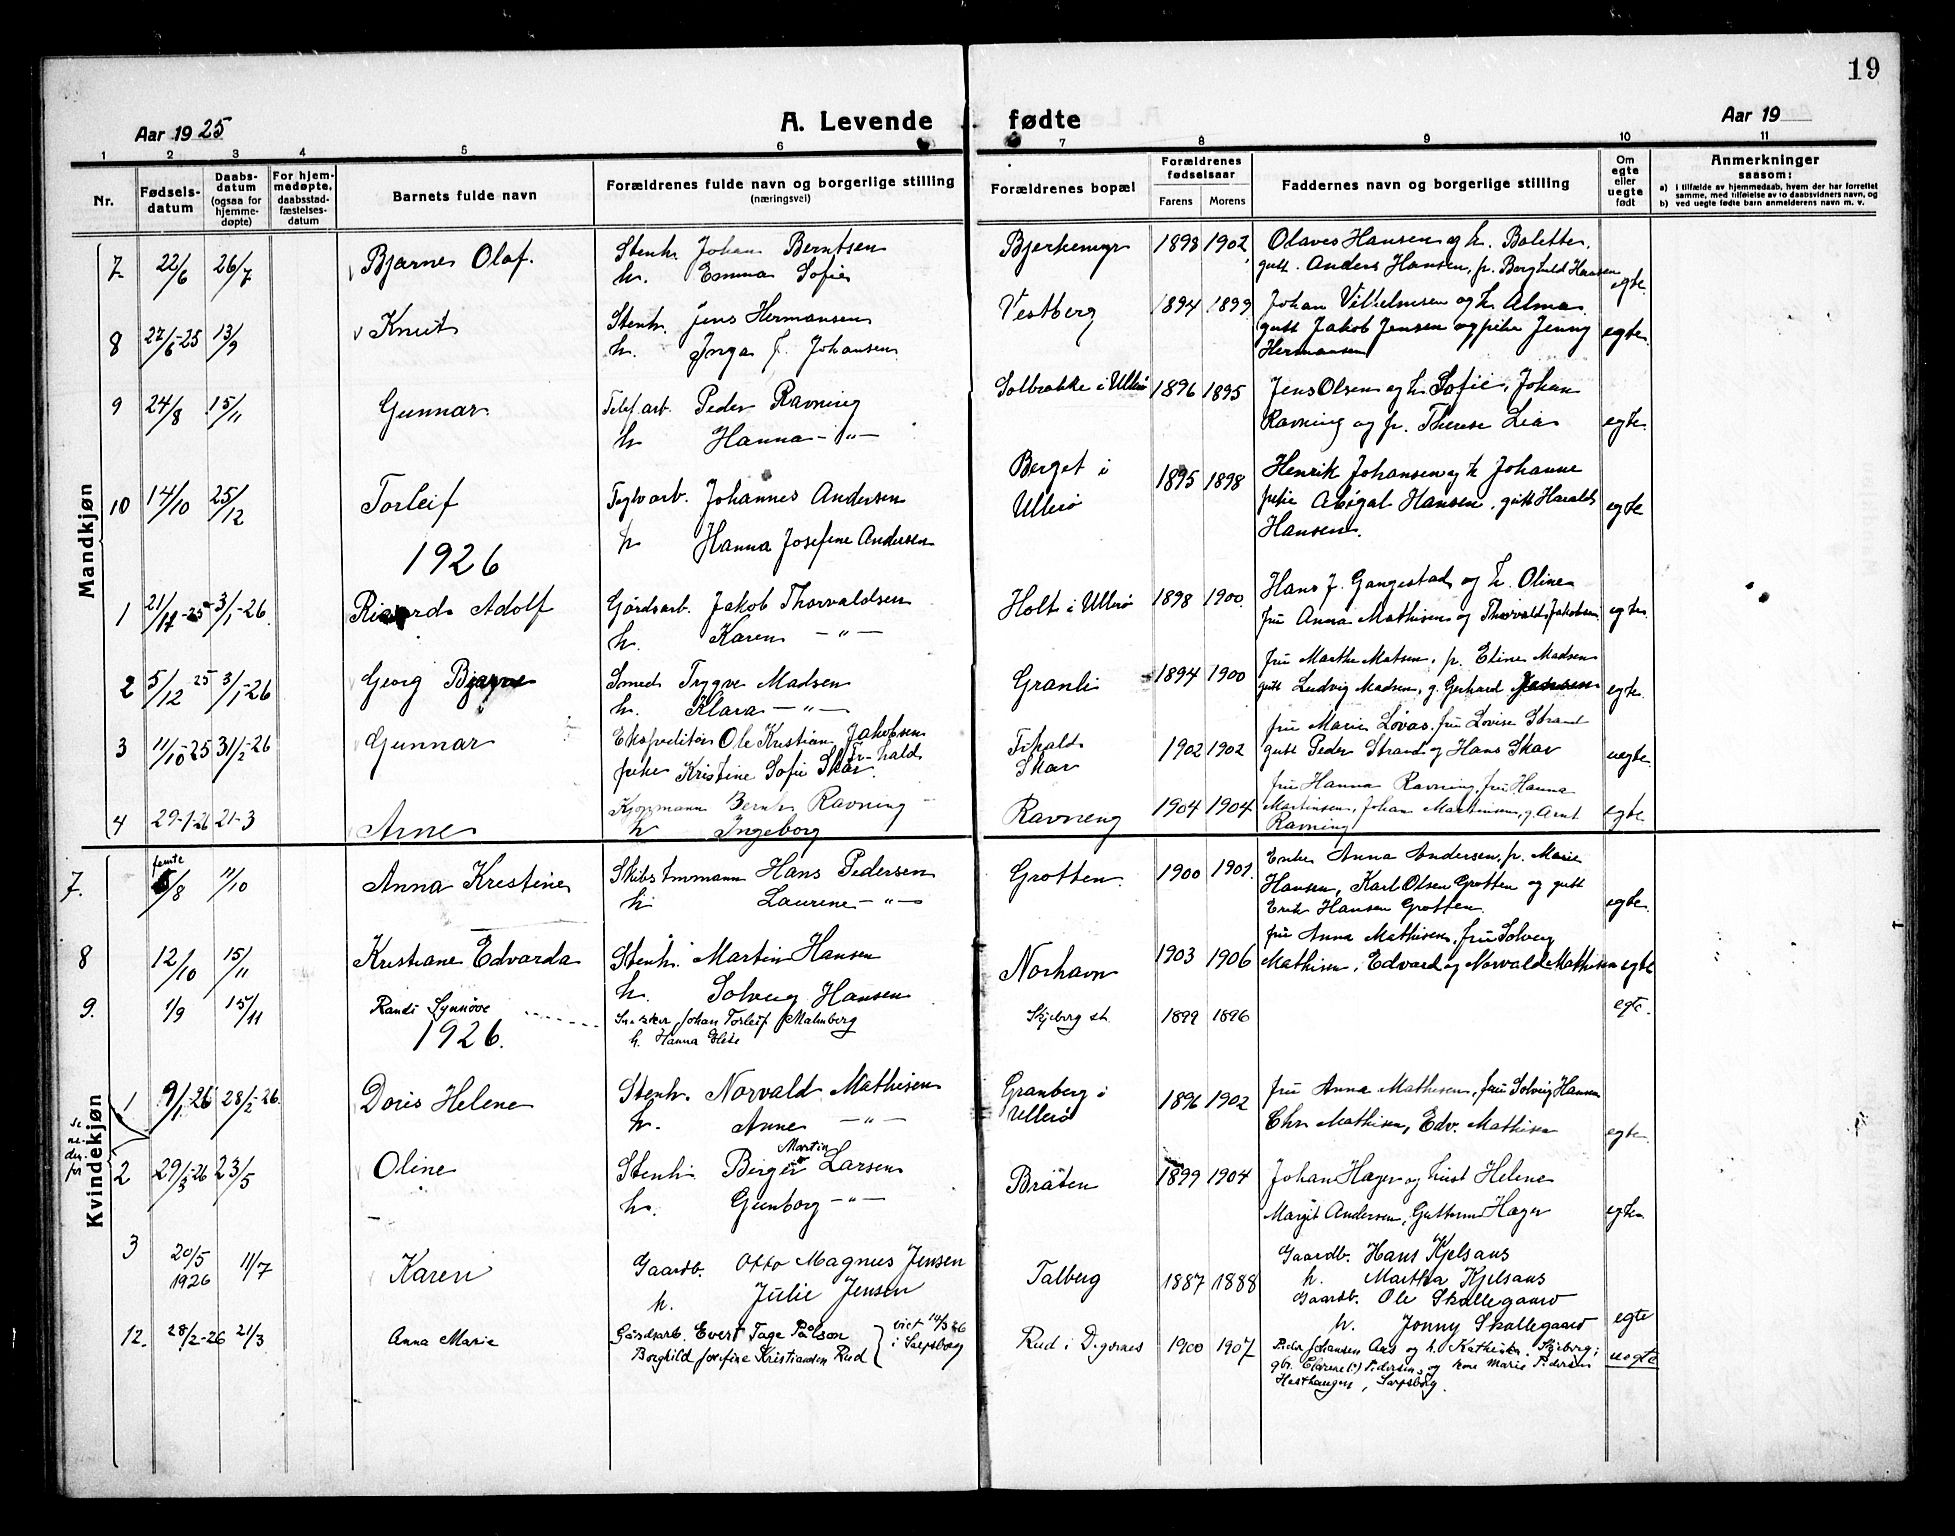 19
Aar 1925 A. Levende fødte Aar 19
1 2 3 4 5 6 7 8 9 10 11
Nr. Fødselsdatum Daabsdatum (ogsaa for hjemmedøpte) For hjemmedøpte, daabsstadfæstelsesdatum Barnets fulde navn Forældrenes fulde navn og borgerlige stilling (næringsvei) Forældrenes bopæl Forældrenes fødselsaar Farens Morens Faddernes navn og borgerlige stilling Om egte eller uegte født Anmerkninger saasom:
a) i tilfælde av hjemmedaab, hvem der har forrettet samme, med tilføielse av to daabsvidners navn, og
b) ved uegte fødte barn anmelderens navn m. v.
Mandkjøn
7 22/6 26/7 Bjarne Olaf. Stenh. Johan Berntsen Bjerkemyr 1898 1902 Olaves Hansen og h. Bolette.
h. Emma Sofie gutt. Anders Hansen, p. Borghild Hansen egte.
8 27/6-25 13/9 Knut Stenh. Jens Hermansen Vestberg 1894 1899 Johan Vilhelmsen og h. Alma
h. Inga F. Johansen gutt Jakob Jensen og pike Jenny egte.
Hermansen
9 24/8 15/11 Gunnar. Telef arb. Peder Ravning Solbakke i Ullerø 1896 1895 Jens Olsen og h. Sofie, Johan
h Hanna -"- Ravning og p. Therese Lia egte.
10 14/10 25/12 Torleif Teglv arb. Johannes Andersen Berget i Ullerø 1895 1898 Henrik Johansen og h Johanne
h Hanna Josefine Andersen pike Abigal Hansen, gutt Harald Hansen. egte
1926
1 21/11-25 3/1-26. Rikard Adolf Gårdsarb. Jakob Thorvaldsen Holt i Ullerø 1898 1900. Hans J. Gangestad og h. Oline
h. Karen -"- fru Anna Mathisen og Thorvald Jakobsen egte.
2 5/12 25 3/1-26 Georg Bjarne Smed Trygve Madsen Granli 1894 1900 fru Marthe Matsen, p. Eline Madsen
h. Klara -"- gutt Ludvig Madsen, g. Gerhard Jansen egte.
3 11/10-25 31/2-26 Gunnar Ekspeditør Ole Kristian Jakobsen Fr-hald 1902 1902 fru Marie Løvås, fru Lovise Strand
pike Kristine Sofie Skar. Skar gutt Peder Strand og Hans Skar uegte.
4 29-1-26 21-3 Arne Kjøpmann Bernh Ravning Ravneng 1904 1904 fru Hanna Ravning, fru Hanna
h Ingeborg Martinsen, Johan Martinsen, g. Arnt Ravning egte.
Kvindekjøn
7. femte 5/8 11/10 Anna Kristine Skibstømmann Hans Pedersen Grotten. 1900 1901. Enke Anna Andersen, p. Marie
h. Laurene -"- Hansen, Karl Olsen Grotten og gutt Erik Hansen Grotten. egte.
8 12/10 15/11 Kristiane Edvarda Stenh. Martin Hansen Norhavn 1903 1906 fru Anna Mathisen, fru Solveig
h. Solveig Hansen Mathisen, Edvard og Norvald Mathisen egte
9. 1/9 15/11 Randi Synnøve Johan Torleif Malmberg Skjeberg st. 1899 1896 egte.
h. Hanna
1926.
1 9/1 26 28/2-26. Doris Helene Stenh. Norvald Mathisen Granberg i Ullerø 1896 1902 fru Anna Mathisen, fru Solveig Hansen
h. Anne -"- Chr Mathisen, Edv. Mathisen egte.
se nedenfor
2 29/3-26 23/5 Oline Stenh. Birger Martin Larsen Bråten 1899 1904 Johan Hager og hust Helene
h. Gunborg -"- Margit Andersen, Guttorm Hager egte.
3 20/5 1926 11/7 Karen Gaardb. Otto Magnus Jensen Talberg 1887 1888 Gaardb. Hans Kjelsaas
h. Julie Jensen h. Martha Kjelsaas
Gaardb. Ole Skallegaard
h. Jonny Skallegaard egte
12. 28/2-26 21/3 Anna Marie Gårdsarb. Evert Tage Pålson viet 14/3 26 i Sarpsborg Rud i Digernes 1900 1907 Peder Johansen Aas og h. Kathinka, Skjeberg;
Borghild Josefine Kristiansen Rud gbr. Clarene(?) Pedersen, og kone Marie Pedersen uegte
Hesthaugen, Sarpsborg.